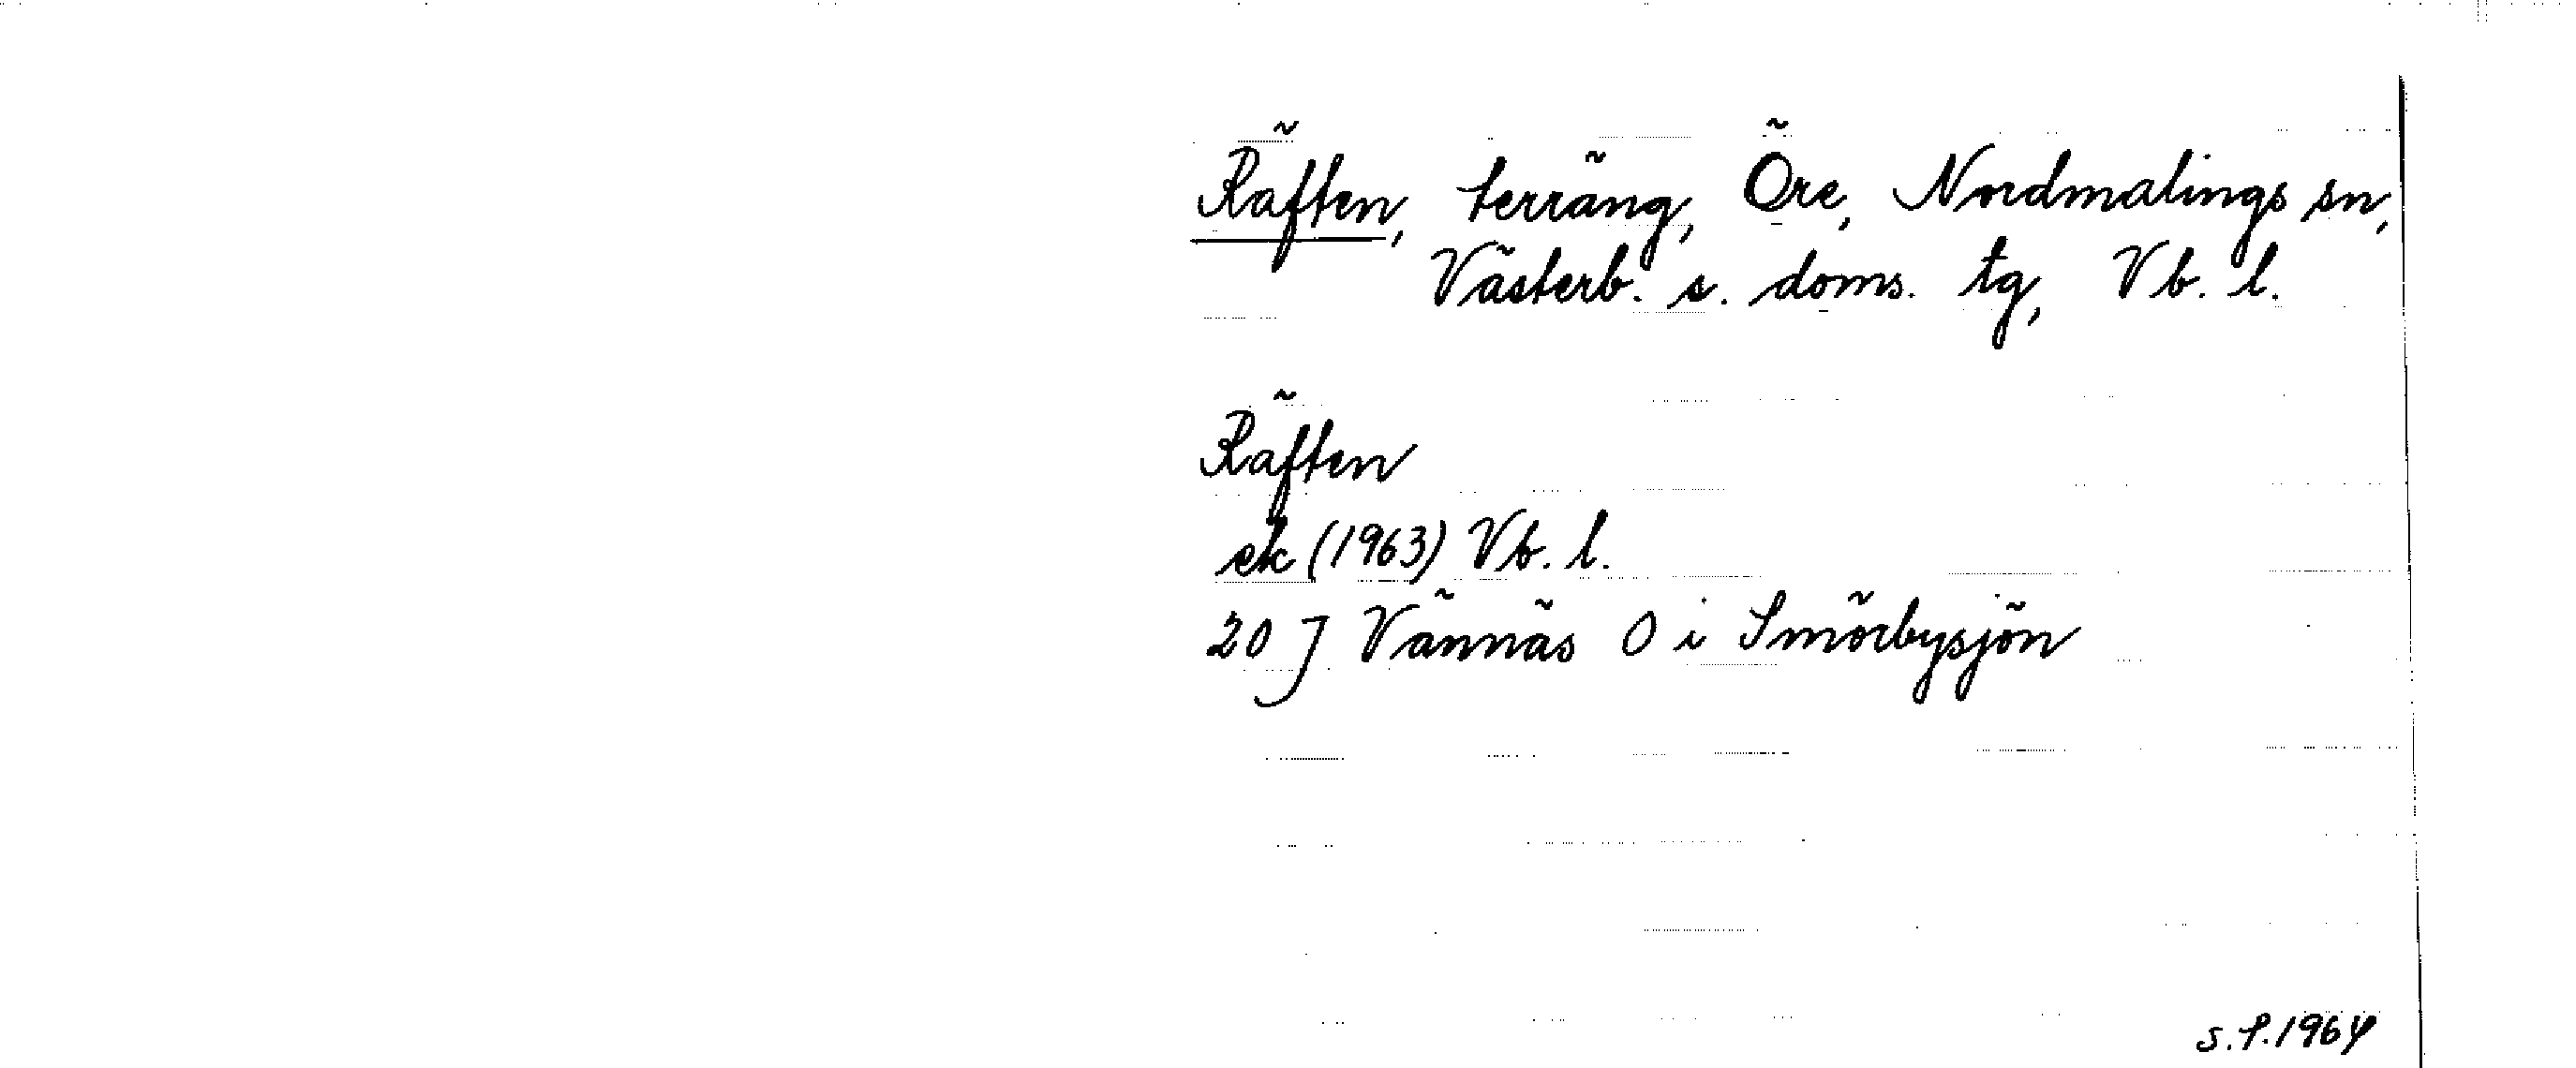 Räften, terräng, Öre, Nordmalings sn,
Västerb. s. doms. tg, Vb. l.
Räften
ek (1963) Vb. l.
20 J Vännäs O i Smörbysjön
s. f. 1964